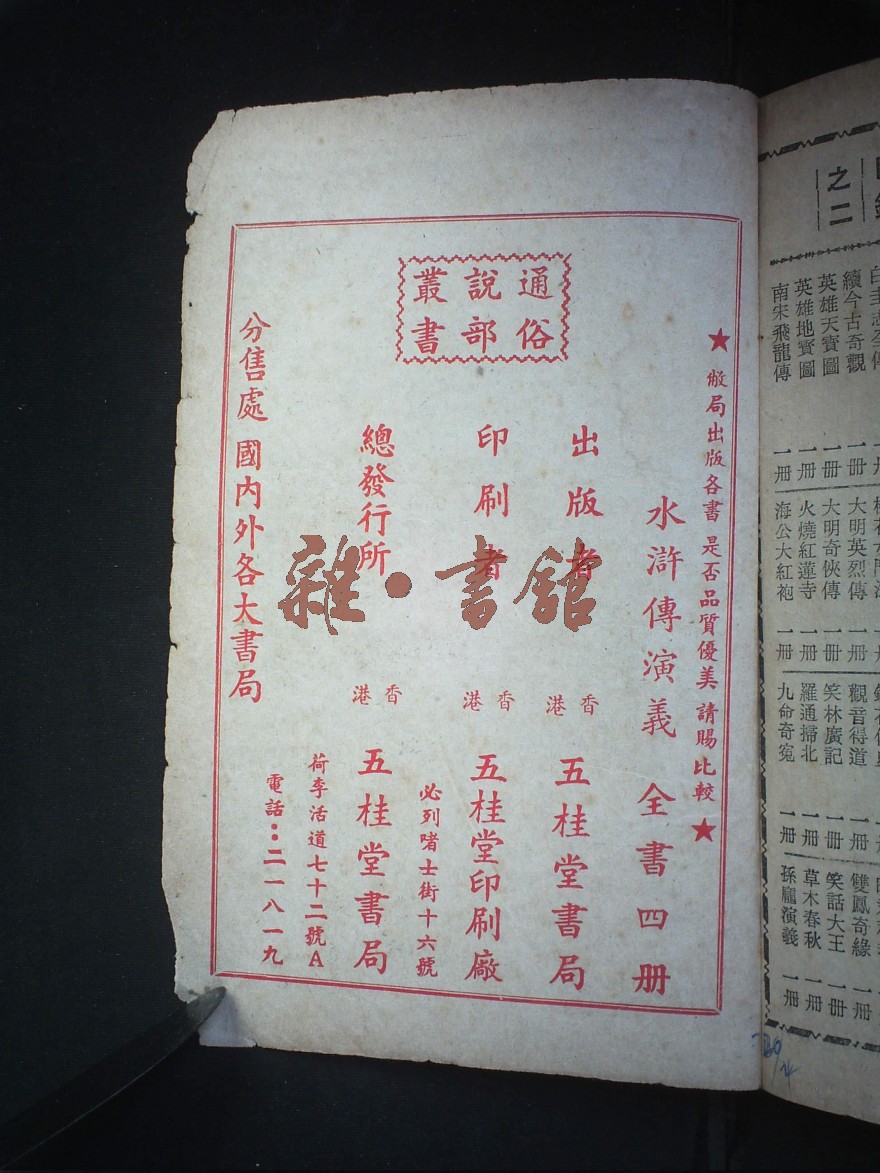 ★敝局出版各書 是否品質優美 請賜比較★
通俗
說部
叢書
水滸傳演義 全書四冊
出版者 香港 五桂堂書局
印刷者 香港 五桂堂印刷廠
必列啫士街十六號
總發行所 香港 五桂堂書局
荷李活道七十二號A
電話：二一八一九
分售處 國內外各大書局
雜·書館
之二
續今古奇觀 一冊
英雄天寶圖 一冊
英雄地寶圖 一冊
南宋飛龍傳 一冊
大明英烈傳 一冊
大明奇俠傳 一冊
火燒紅蓮寺 一冊
海公大紅袍 一冊
觀音得道 一冊
笑林廣記 一冊
羅通掃北 一冊
九命奇冤 一冊
雙鳳奇緣 一冊
笑話大王 一冊
草木春秋 一冊
孫龐演義 一冊